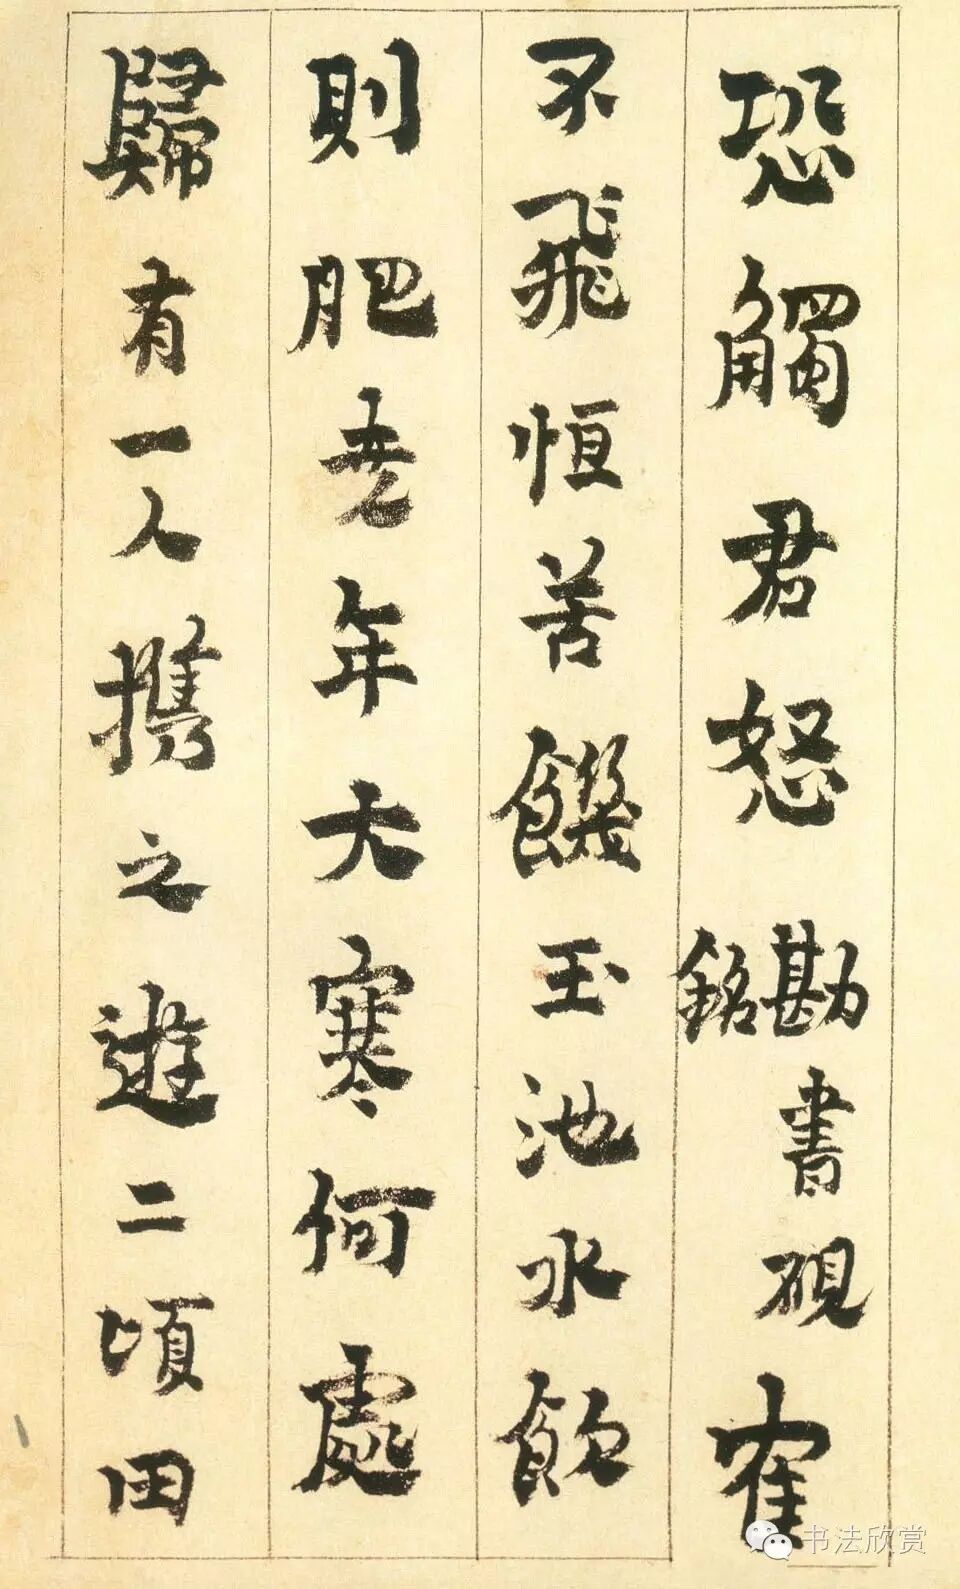 恐觸君怒勘書硯銘寉
不飛恒苦饑玉池水飲
則肥老年大寒何處
歸有一人攜之遊二頃田
书法欣赏